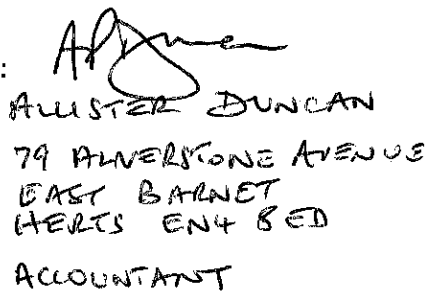 :
ALLISTER DUNCAN
79 ALVERSTONE AVENUE
EAST BARNET
HERTS EN4 8ED
ACCOUNTANT